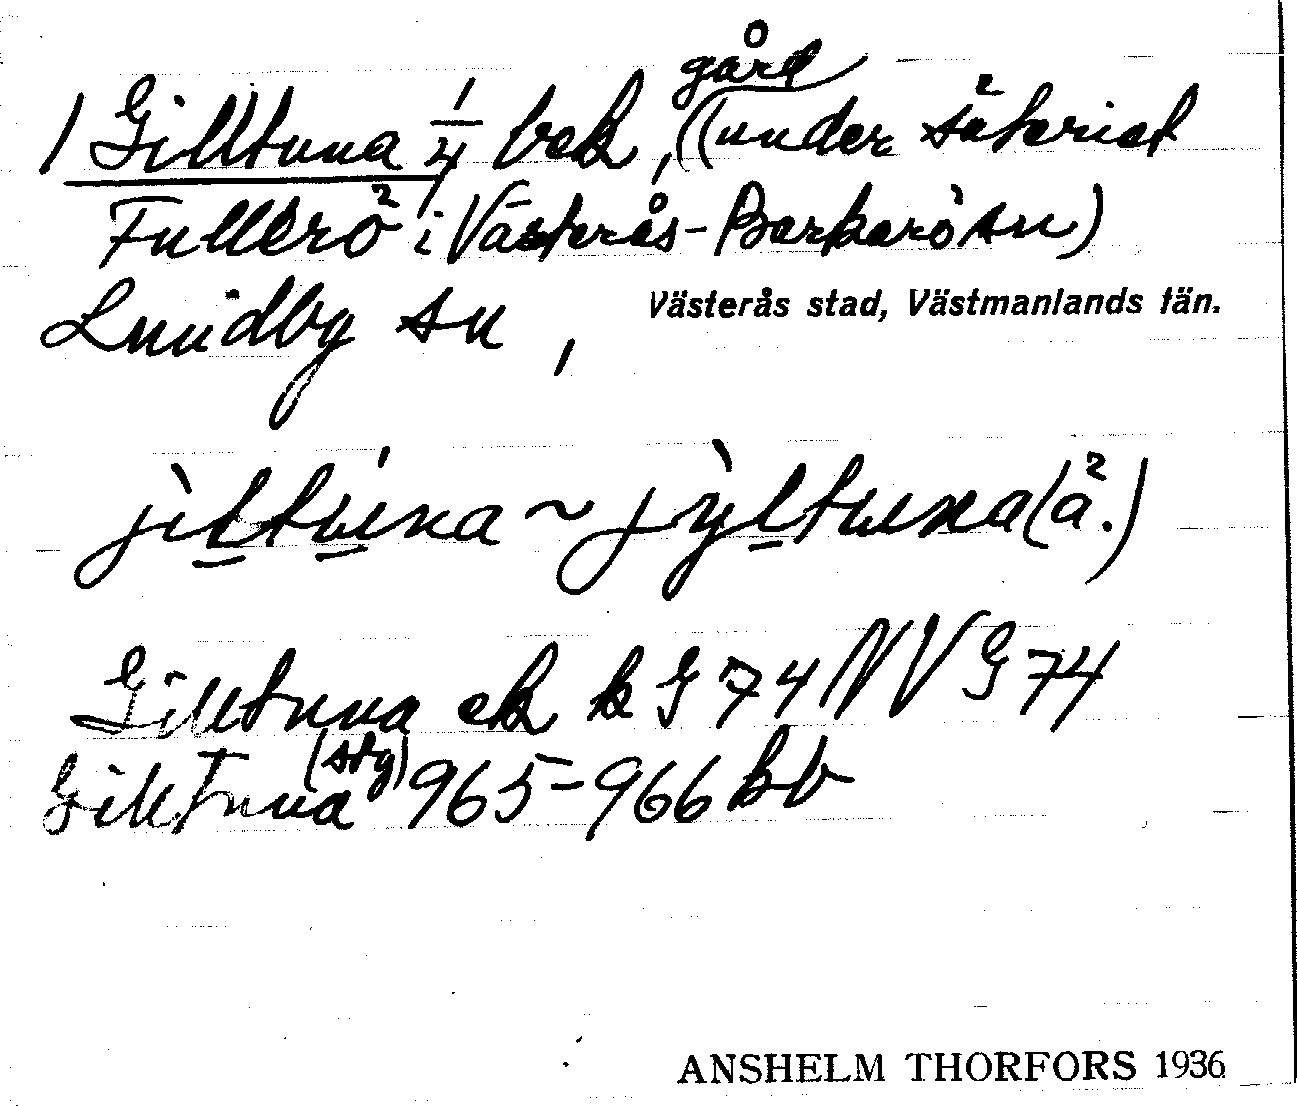 1 Gilltuna 1/4 bek, gård (under säteriet
Fullerö i Västerås-Barkarö sn)
Lundby sn, Västerås stad, Västmanlands län.
jìltúna ~ jỳltuna (ä.)
Gilltuna ek k G 74 NV G 74
Gilltuna (stg) 965-966 bb
ANSHELM THORFORS 1936